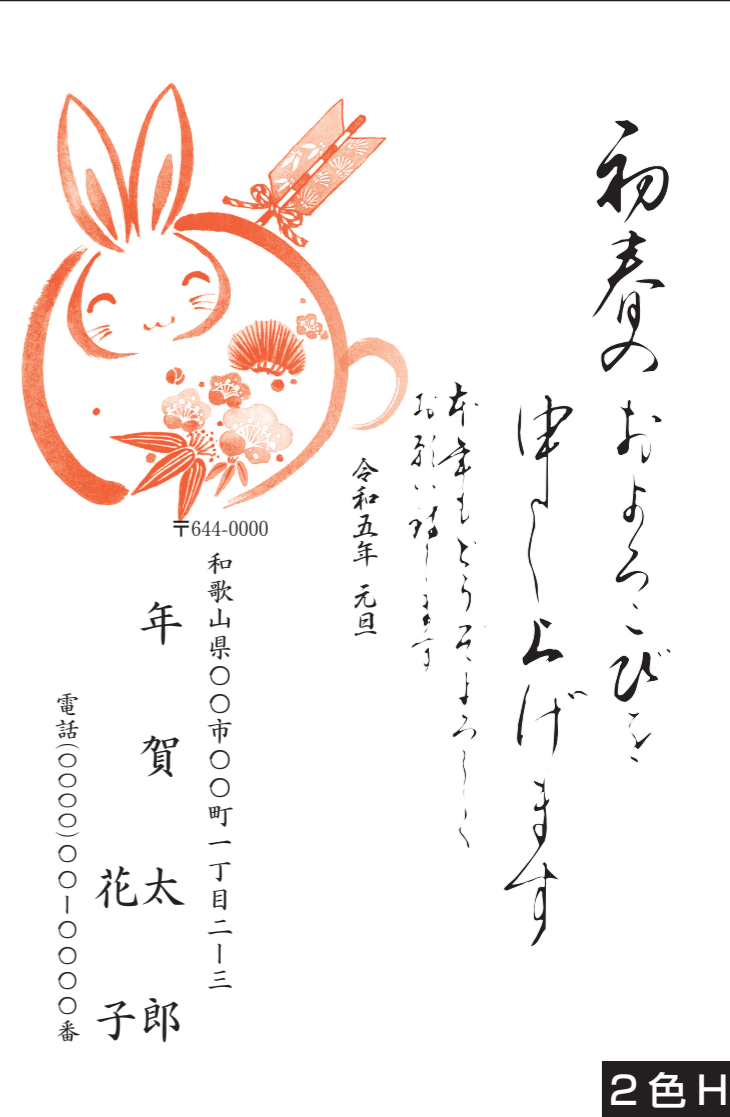 初春の
およろこびを
申し上げます
本年もどうぞよろしく
お願い致します
令和五年 元旦
〒644-0000
和歌山県〇〇市〇〇町一丁目二ー三
年賀太郎
花子
電話(〇〇〇〇)〇〇ー〇〇〇〇番
2色H